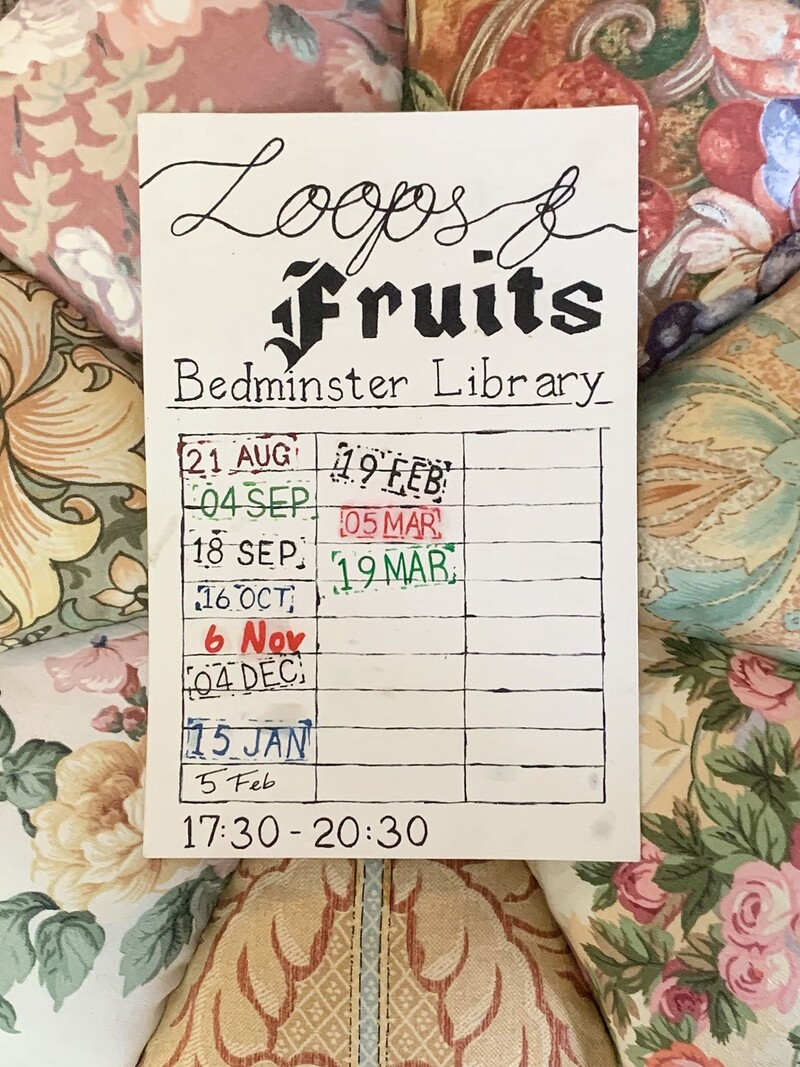 Loops &
Fruits
Bedminster Library
21 AUG
04 SEP
18 SEP
16 OCT
6 Nov
04 DEC
15 JAN
5 Feb
19 FEB
05 MAR
19 MAR
17:30 - 20:30